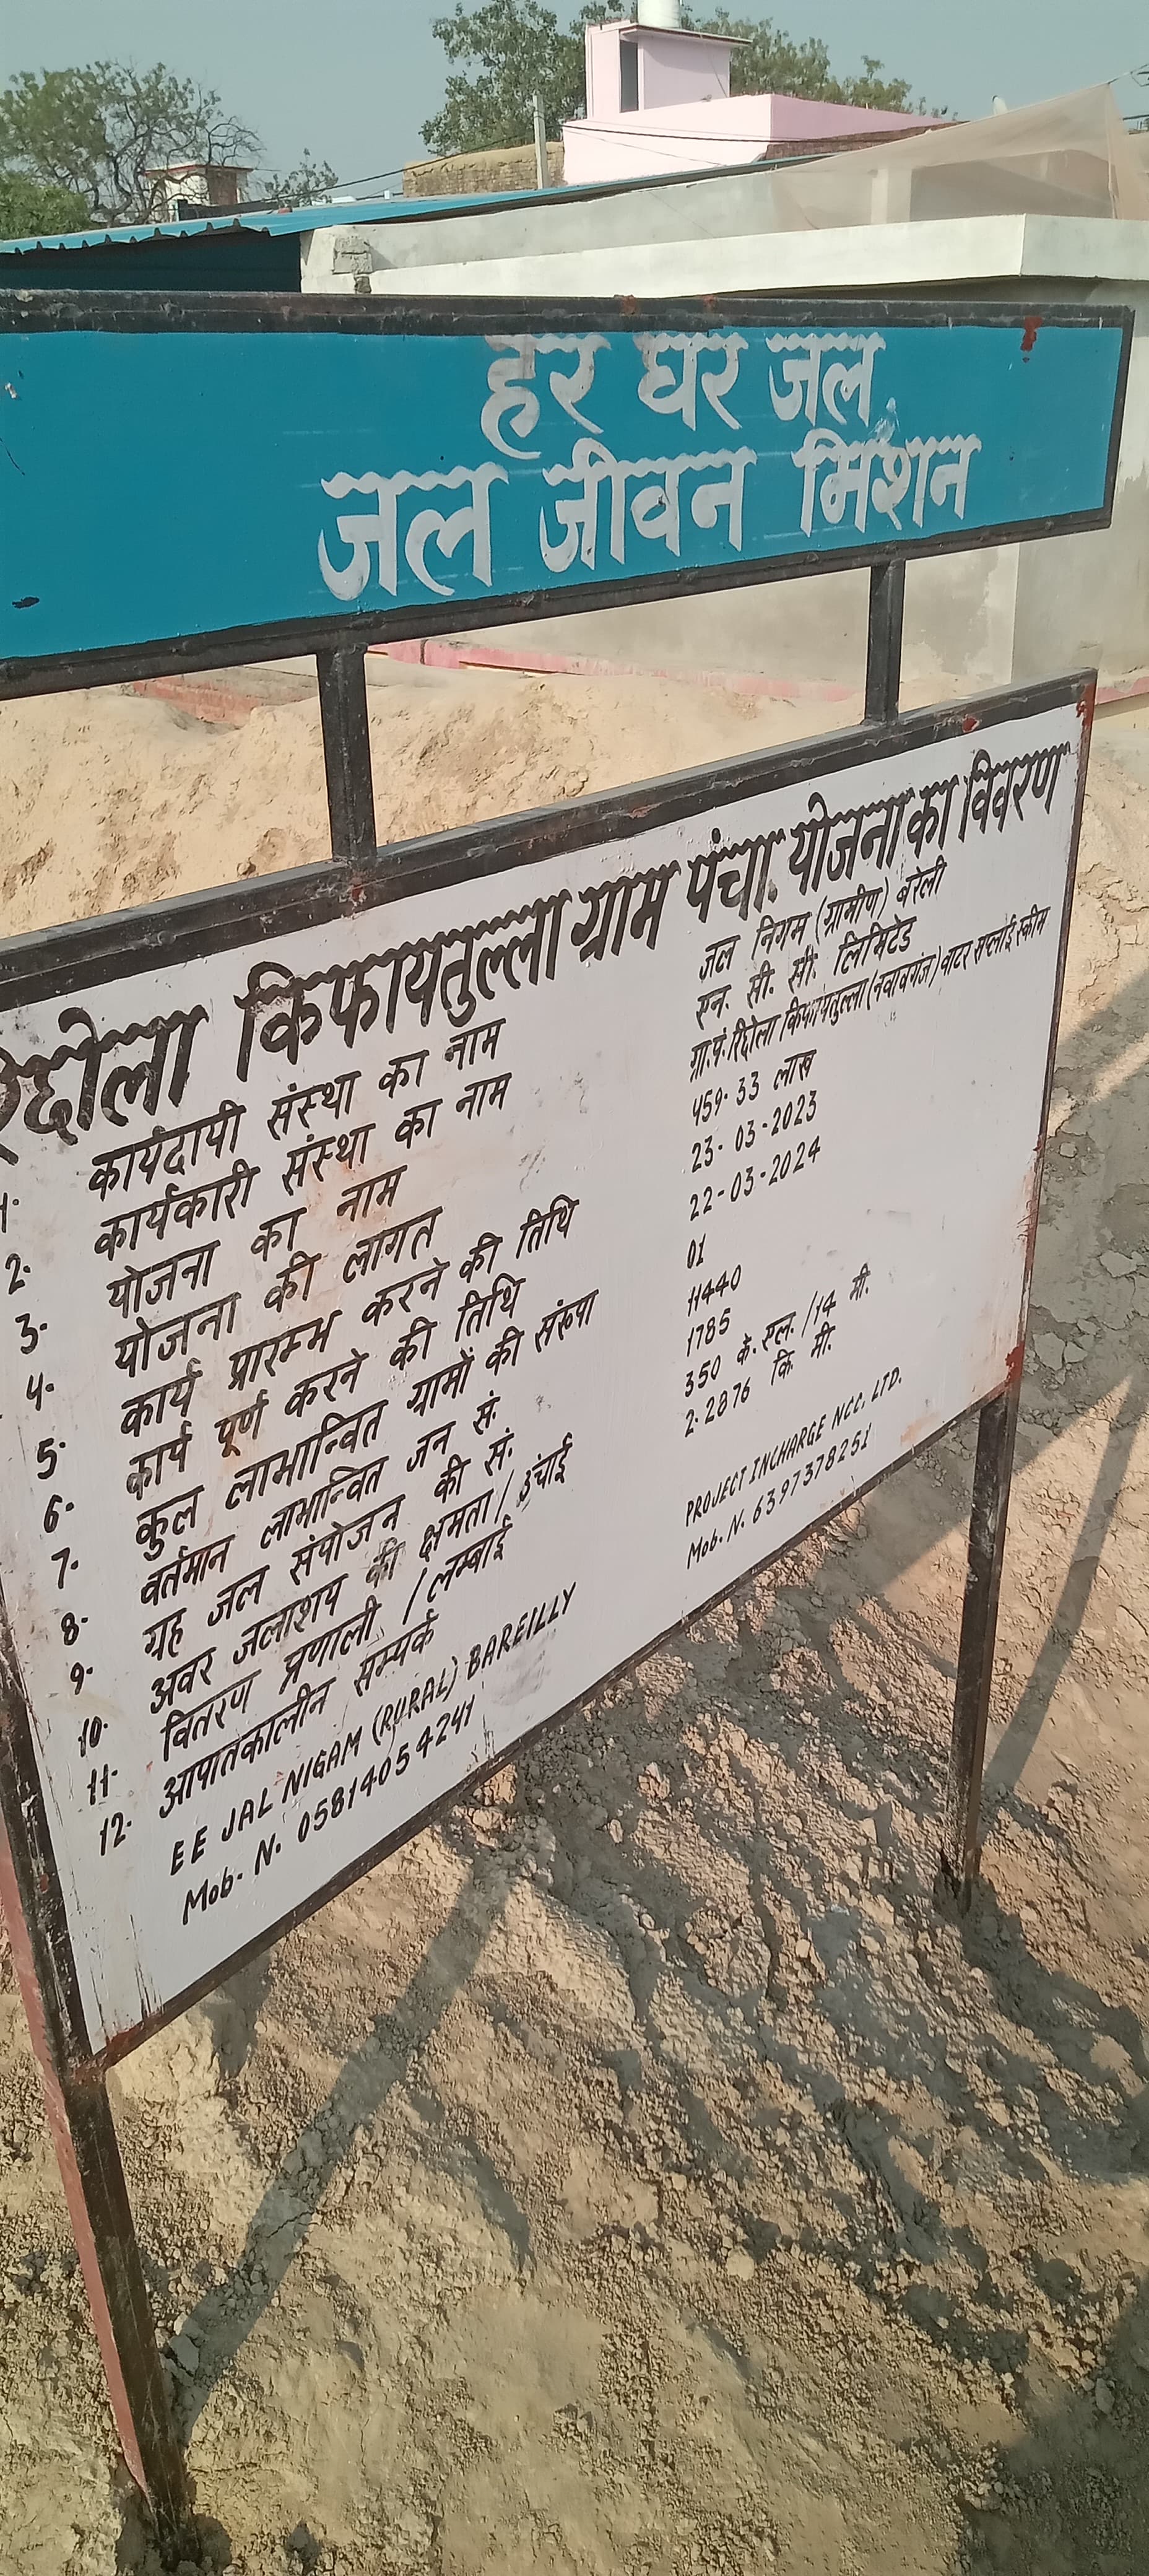 हर घर जल
जल जीवन मिशन
रिछोला किफायतुल्ला ग्राम पंचा. योजना का विवरण
1. कार्यदायी संस्था का नाम जल निगम (ग्रामीण) बरेली
2. कार्यकारी संस्था का नाम एन. सी. सी. लिमिटेड
3. योजना का नाम ग्रा.पं. रिछोला किफायतुल्ला (नवाबगंज) वाटर सप्लाई स्कीम
4. योजना की लागत 459.33 लाख
5. कार्य प्रारम्भ करने की तिथि 23-03-2023
6. कार्य पूर्ण करने की तिथि 22-03-2024
7. कुल लाभान्वित ग्रामों की संख्या 01
8. वर्तमान लाभान्वित जन सं. 11440
9. गृह जल संयोजन की सं. 1785
10. अवर जलाशय की क्षमता / उंचाई 350 के. एल. / 14 मी.
11. वितरण प्रणाली / लम्बाई 2.2876 कि मी.
12. आपातकालीन सम्पर्क
EE JAL NIGAM (RURAL) BAREILLY PROJECT INCHARGE NCC. LTD.
Mob. N. 0581405 4241 Mob. N. 6397378251